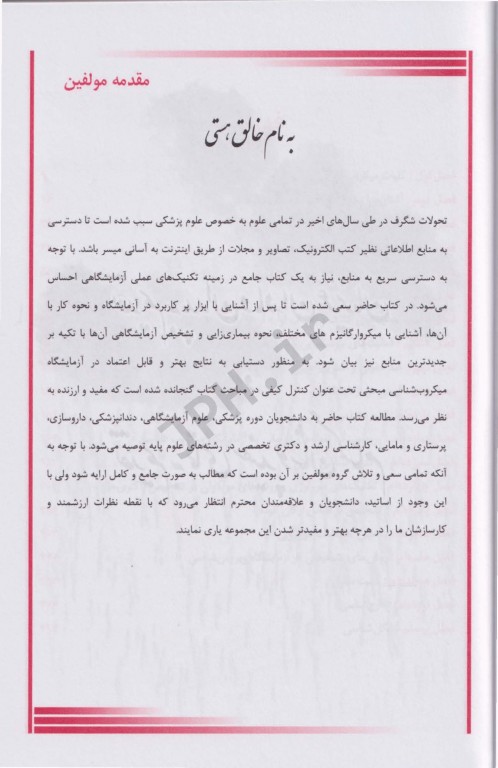 مقدمه مولفین
به نام خالق هستی
تحولات شگرف در طی سال‌های اخیر در تمامی علوم به خصوص علوم پزشکی سبب شده است تا دسترسی
به منابع اطلاعاتی نظیر کتب الکترونیک، تصاویر و مجلات از طریق اینترنت به آسانی میسر باشد. با توجه
به دسترسی سریع به منابع، نیاز به یک کتاب جامع در زمینه تکنیک‌های عملی آزمایشگاهی احساس
می‌شود. در کتاب حاضر سعی شده است تا پس از آشنایی با ابزار پر کاربرد در آزمایشگاه و نحوه کار با
آن‌ها، آشنایی با میکروارگانیزم های مختلف، نحوه بیماری‌زایی و تشخیص آزمایشگاهی آن‌ها با تکیه بر
جدیدترین منابع نیز بیان شود. به منظور دستیابی به نتایج بهتر و قابل اعتماد در آزمایشگاه
میکروب‌شناسی مبحثی تحت عنوان کنترل کیفی در مباحث کتاب گنجانده شده است که مفید و ارزنده به
نظر می‌رسد. مطالعه کتاب حاضر به دانشجویان دوره پزشکی، علوم آزمایشگاهی، دندانپزشکی، داروسازی،
پرستاری و مامایی، کارشناسی ارشد و دکتری تخصصی در رشته‌های علوم پایه توصیه می‌شود. با توجه به
آنکه تمامی سعی و تلاش گروه مولفین بر آن بوده است که مطالب به صورت جامع و کامل ارایه شود ولی با
این وجود از اساتید، دانشجویان و علاقه‌مندان محترم انتظار می‌رود که با نقطه نظرات ارزشمند و
کارسازشان ما را در هرچه بهتر و مفیدتر شدن این مجموعه یاری نمایند.
JPH.ir